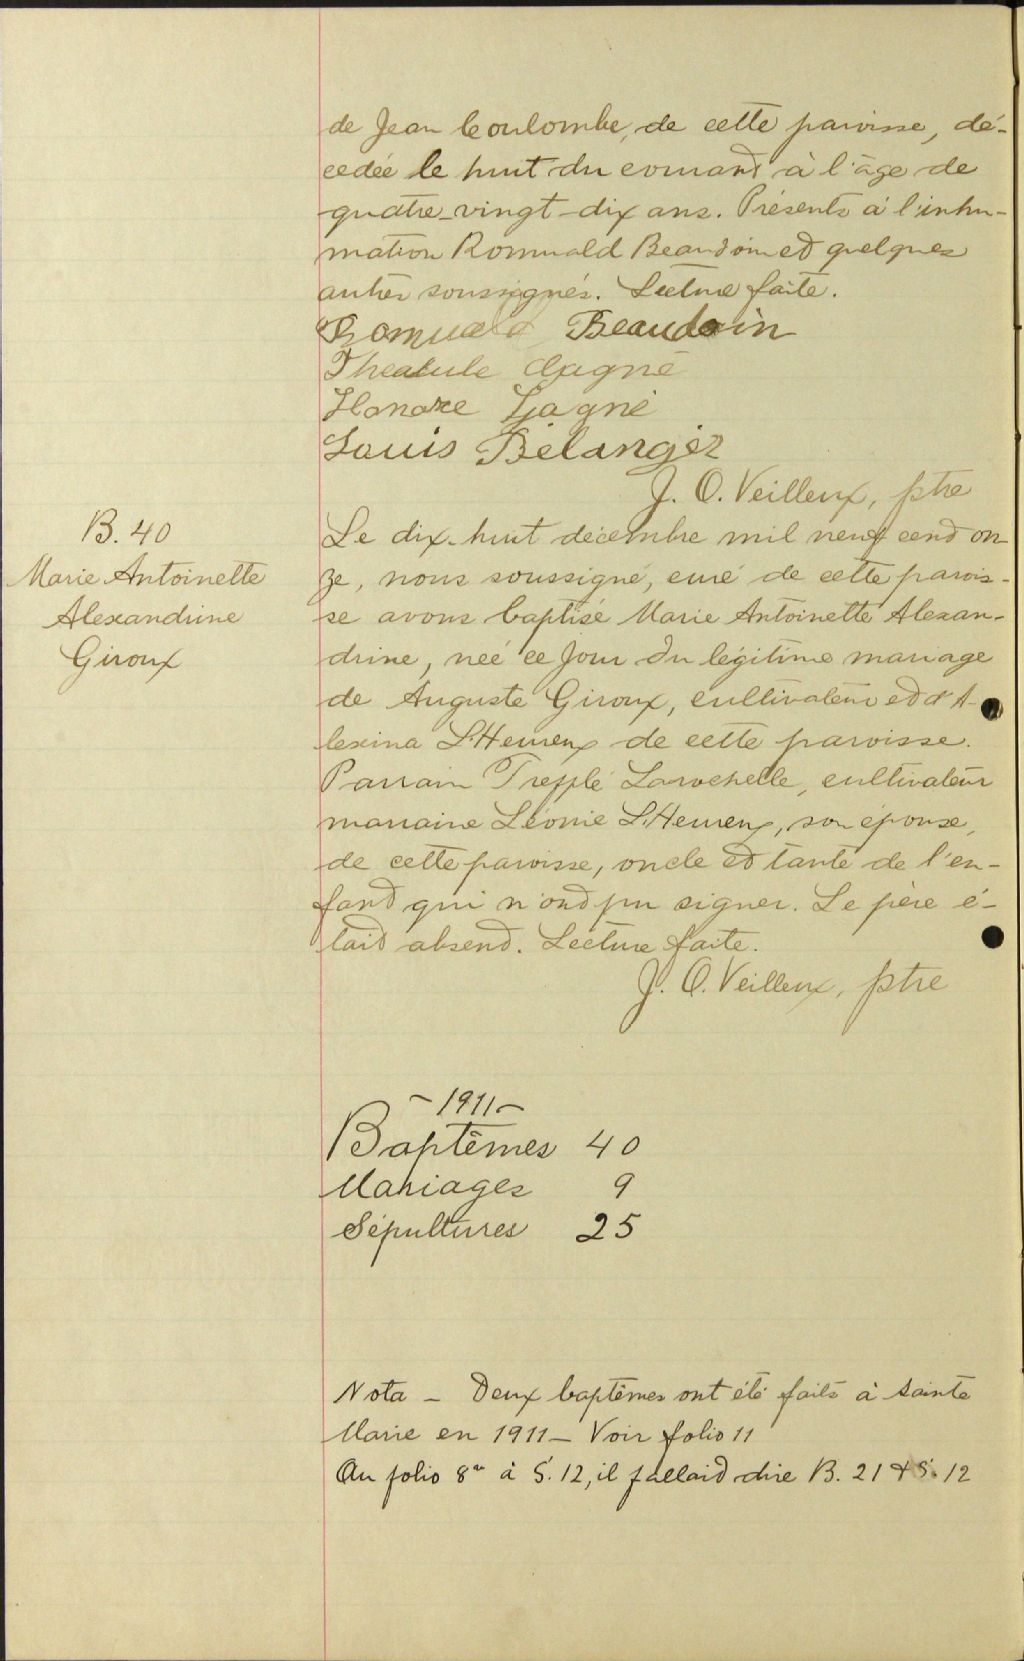 de Jean Coulombe, de cette paroisse, dé-
cedée le huit du courant à l'âge de
quatre-vingt-dix ans. Présents à l'inhu-
mation Romuald Beaudoin et quelques
autres soussignés. Lecture faite.
Romuald Beaudoin
Theadule Gagné
Honore Gagné
Louis Bélanger
J. O. Veilleux, ptre
B. 40
Marie Antoinette
Alexandrine
Giroux
Le dix-huit décembre mil neuf cent on-
ze, nous soussigné, curé de cette parois-
se avons baptisé Marie Antoinette Alexan-
drine, née ce jour du légitime mariage
de Auguste Giroux, cultivateur et d'A-
lexina L'Heureux de cette paroisse.
Parrain Trefflé Larochelle, cultivateur
marraine Léonie L'Heureux, son épouse,
de cette paroisse, oncle et tante de l'en-
fant qui n'ont pu signer. Le père é-
tait absent. Lecture faite.
J. O. Veilleux, ptre
- 1911 -
Baptêmes 40
Mariages 9
Sépultures 25
Nota - Deux baptêmes ont été faits à Sainte
Marie en 1911 - Voir folio 11
Au folio 8 à S. 12, il fallait dire B. 21 & S. 12